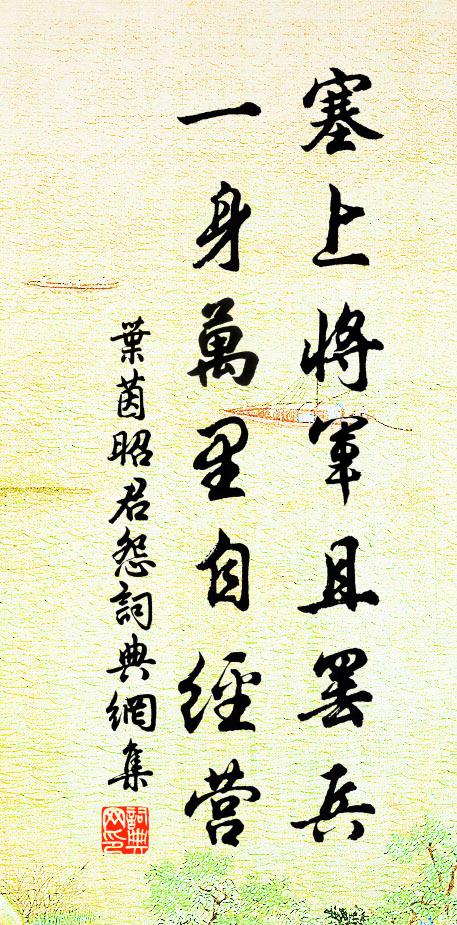 塞上將軍且罷兵
一身萬里自經营
葉茵昭君怨詞典網集
詞典网印